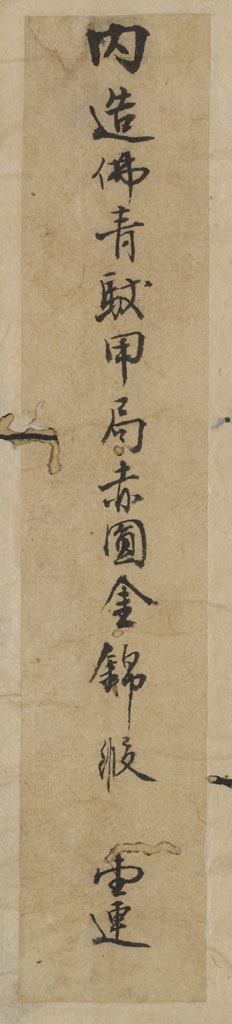 内造佛青馱甲局赤圓金錦緞 壹連